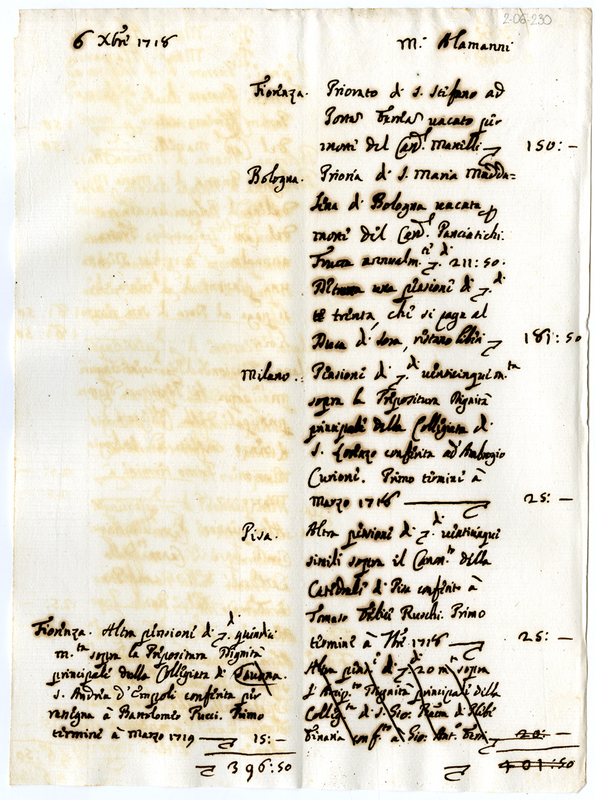 2-06-230
6 Xbre 1718
M.r Alamanni
Fiorenza. Priorato di S. Stefano ad
Portas ferreas vacato per
morte del Card. Martelli 150: -
Bologna. Prioria di S. Maria Madda=
lena di Bologna vacata p
morte del Card. Panciatichi.
Frutta annualm.te di 211:50.
Detratta una pensione di di
te trenta, che si paga al
Duca di Sora, restano liberi 181:50
Milano. Pensione di di venticinque m.ta
sopra la Prepositura Dignità
principale della Collegiata di
S. Lorenzo conferita ad Ambrogio
Curioni. Primo termine à
Marzo 1718 25: -
Pisa. Altra pensione di di venticinque
simili sopra il Canon.to della
Catedrale di Pisa conferito à
Tomaso Ruschi. Primo
termine à 1718 25: -
Altra pens.e di 20 m.ta sopra
l' Dignità principale della
Colleg.ta di S. Gio.
conf.ta à Gio. Ant. 20: -
401:50
Fiorenza. Altra pensione di di quindici
m.ta sopra la Prepositura Dignità
principale della Collegiata di
S. Andrea d'Empoli conferita per
resegna à Bartolomeo Pucci. Primo
termine à Marzo 1719 15: -
396:50